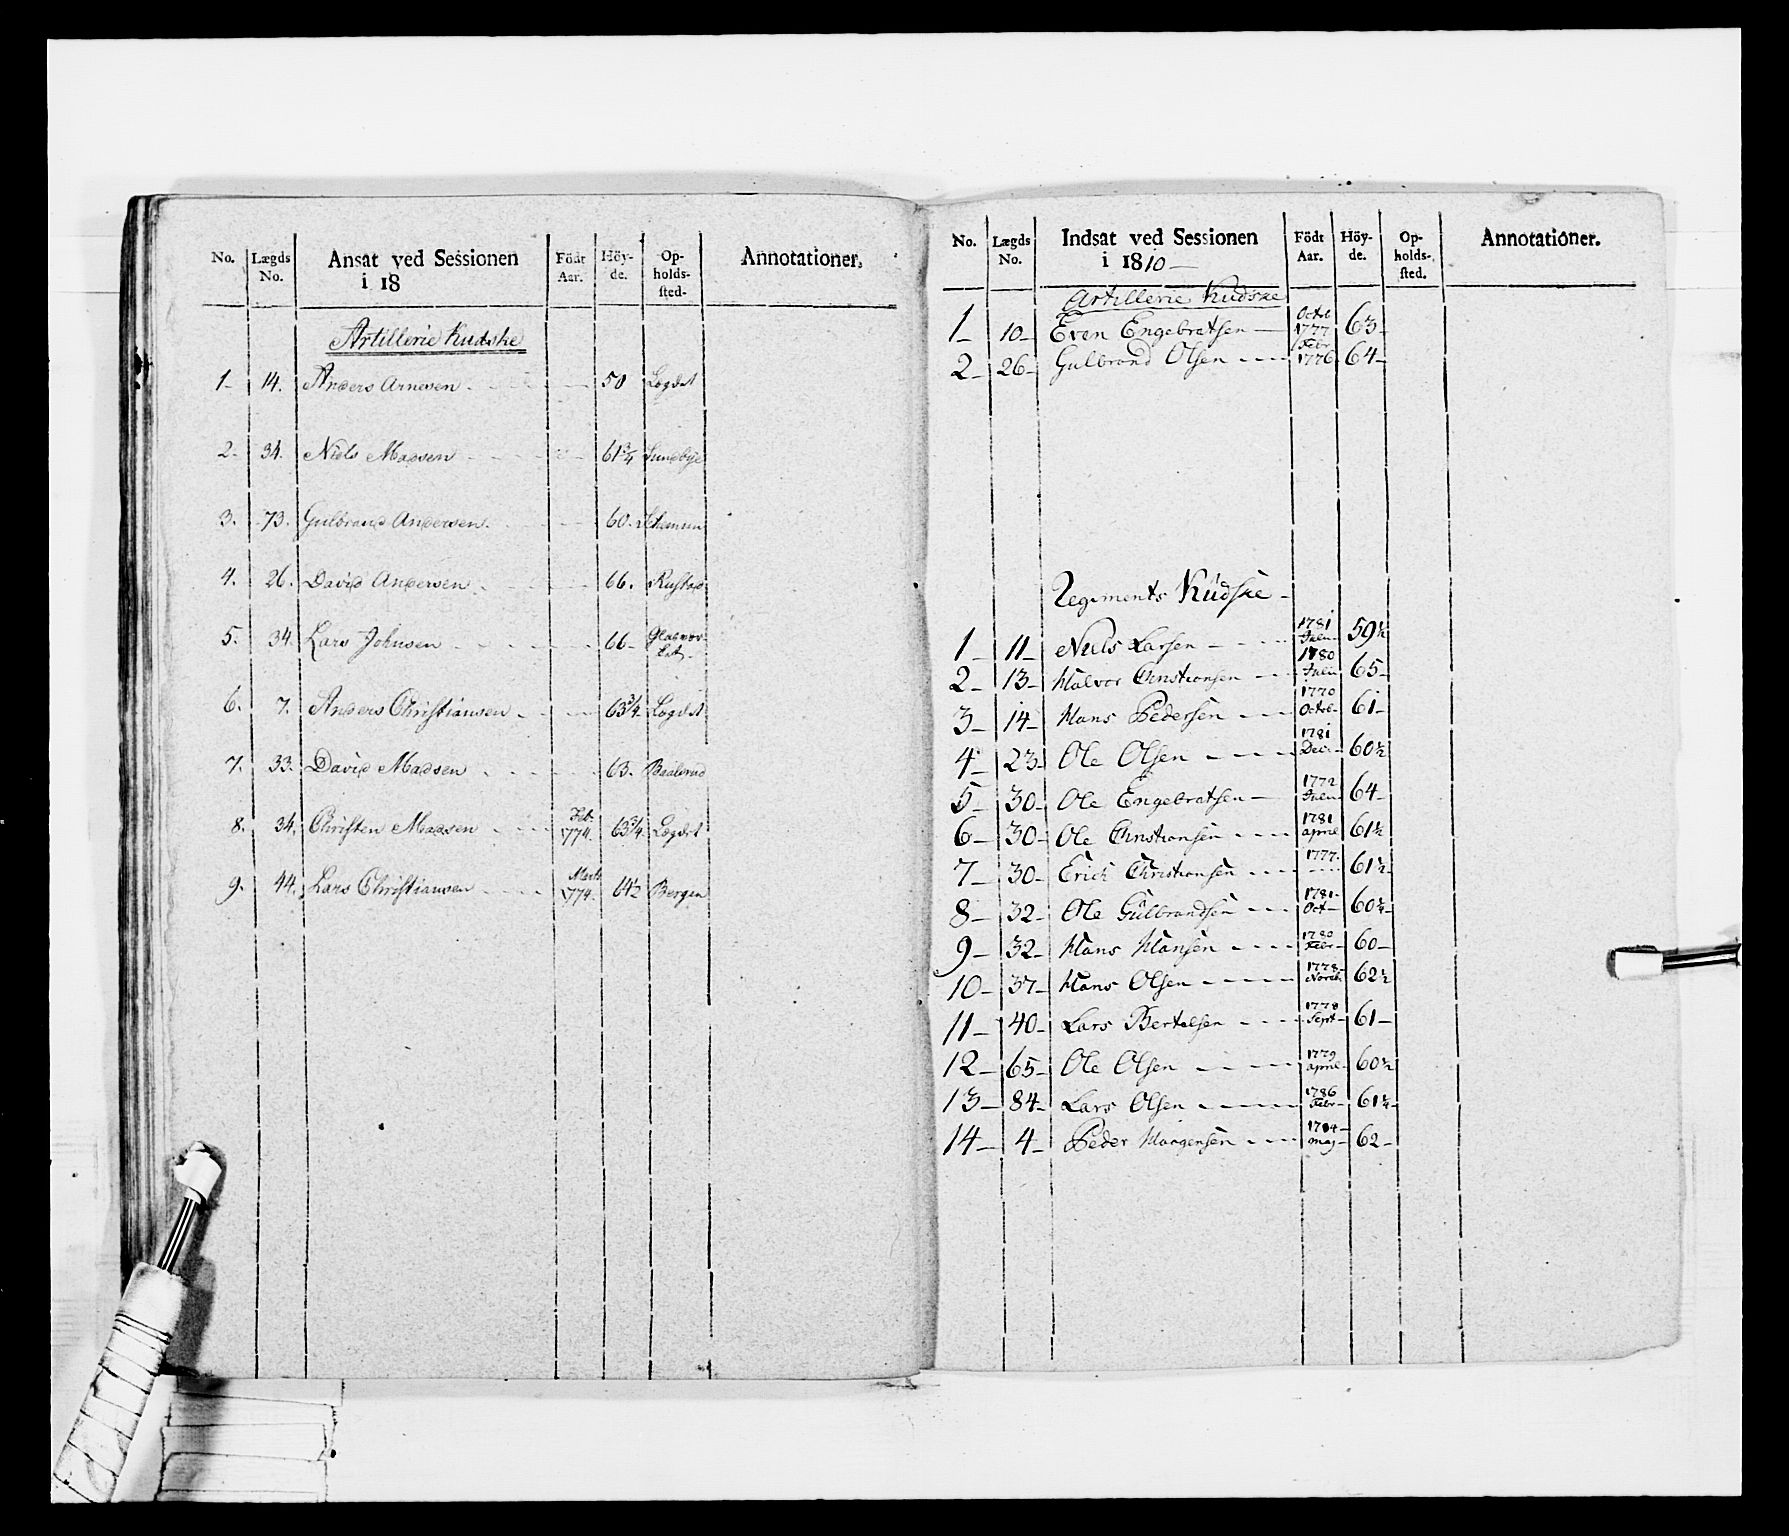 No. Lægds No. Ansat ved Sessionen i 18 Födt Aar. Höyde. Opholdssted. Annotationer.
Artillerie Kudske
1- 14. Anders Arnesen 50 Løgdet
2- 34. Niels Madsen 61 3/4 Sundbye
3. 73. Gulbrand Andersen 60.
4. 26. David Andersen 66. Rustad
5. 34. Lars Johnsen 66-
6. 7. Anders Christiansen 63 3/4 Løgdet
7. 33. David Madsen 63.
8. 34. Christen Madsen Feb. 1774. 63 3/4 Løgdet
9. 44. Lars Christiansen Marts 1774. 64 1/2 Bergen
No. Lægds No. Indsat ved Sessionen i 1810 Födt Aar. Höyde. Opholdssted. Annotationer.
Artillerie Kudske
1- 10- Even Engebretsen Octr 1777 63-
2- 26- Gulbrand Olsen Febr 1776 64-
Regiments Küdske
1- 11- Niels Larsen 1781 Julii 59 1/2
2- 13- Halvor Christiansen 1780 Julii 65-
3- 14- Hans Pedersen 1770 Octbr 61-
4- 23- Ole Olsen 1781 Decr 60 1/2
5- 30- Ole Engebretsen 1772 Julii 64-
6- 30- Ole Christiansen 1781 April 61 1/2
7- 30- Erich Christiansen 1777 61 1/2
8- 32- Ole Gülbrandsen 1781 Oct 60 3/4
9- 32- Hans Hansen 1780 Febr 60-
10- 37- Hans Olsen 1778 Novbr 62 1/2
11- 40- Lars Bertelsen 1778 Sept 61-
12- 65- Ole Olsen 1779 April 60 1/2
13- 84- Lars Olsen 1786 Febr 61 1/2
14- 4- Peder Haagensen May 62-